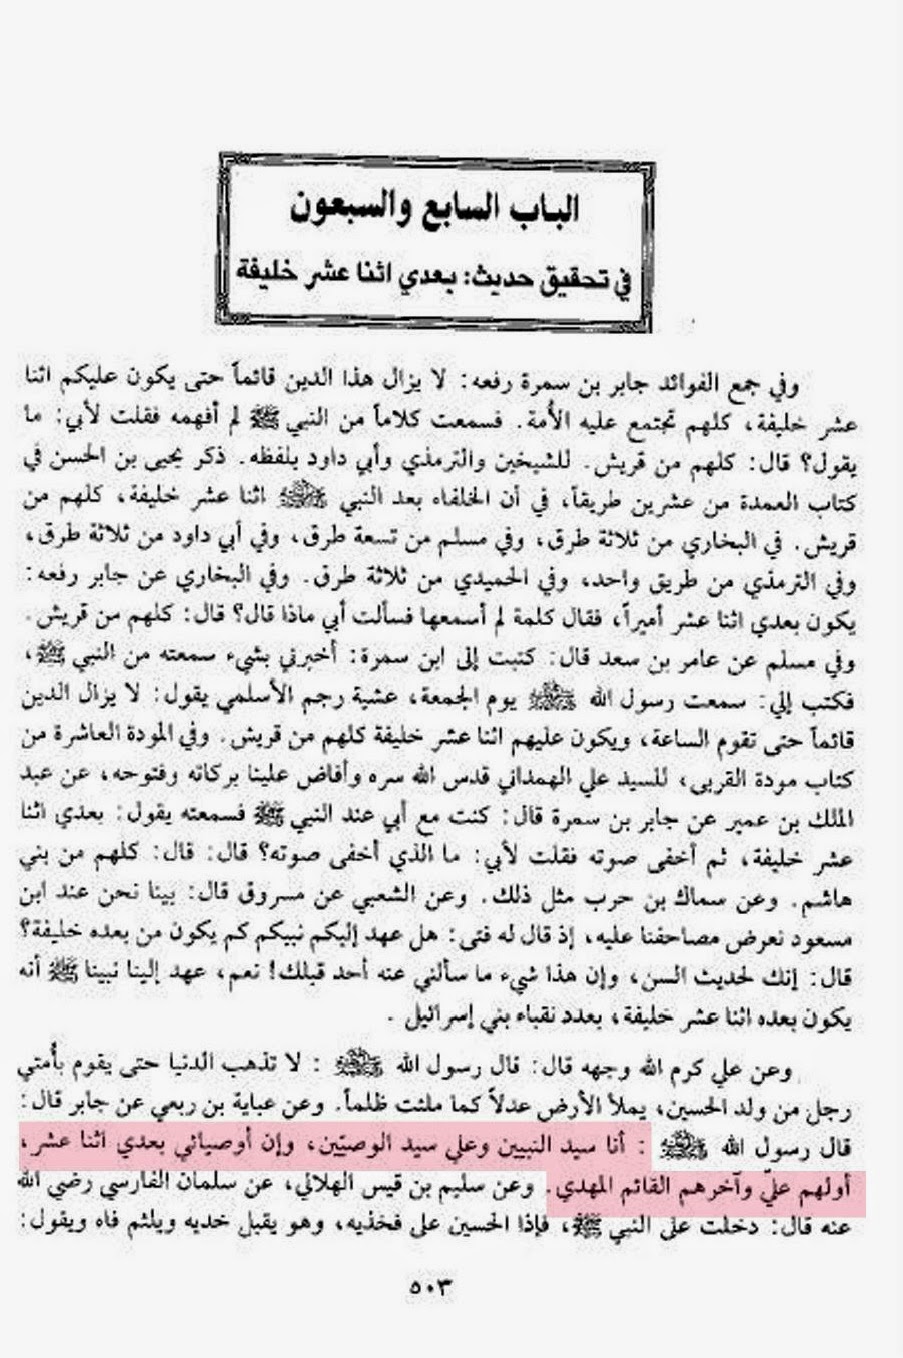 الباب السابع والسبعون
في تحقيق حديث: بعدي اثنا عشر خليفة
وفي جمع الفوائد جابر بن سمرة رفعه: لا يزال هذا الدين قائماً حتى يكون عليكم اثنا
عشر خليفة، كلهم تجتمع عليه الأمة. فسمعت كلاماً من النبي ﷺ لم أفهمه فقلت لأبي: ما
يقول؟ قال: كلهم من قريش. للشيخين والترمذي وأبي داود بلفظه. ذكر يحيى بن الحسن في
كتاب العمدة من عشرين طريقاً، في أن الخلفاء بعد النبي ﷺ اثنا عشر خليفة، كلهم من
قريش. في البخاري من ثلاثة طرق، وفي مسلم من تسعة طرق، وفي أبي داود من ثلاثة طرق،
وفي الترمذي من طريق واحد، وفي الحميدي من ثلاثة طرق. وفي البخاري عن جابر رفعه:
يكون بعدي اثنا عشر أميراً، فقال كلمة لم أسمعها فسألت أبي ماذا قال؟ قال: كلهم من قريش.
وفي مسلم عن عامر بن سعد قال: كتبت إلى ابن سمرة: أخبرني بشيء سمعته من النبي ﷺ،
فكتب إلي: سمعت رسول الله ﷺ يوم الجمعة، عشية رجم الأسلمي يقول: لا يزال الدين
قائماً حتى تقوم الساعة، ويكون عليهم اثنا عشر خليفة كلهم من قريش. وفي المودة العاشرة من
كتاب مودة القربى، للسيد علي الهمداني قدس الله سره وأفاض علينا بركاته وفتوحه، عن عبد
الملك بن عمير عن جابر بن سمرة قال: كنت مع أبي عند النبي ﷺ فسمعته يقول: بعدي اثنا
عشر خليفة، ثم أخفى صوته فقلت لأبي: ما الذي أخفى صوته؟ قال: قال: كلهم من بني
هاشم. وعن سماك بن حرب مثل ذلك. وعن الشعبي عن مسروق قال: بينا نحن عند ابن
مسعود نعرض مصاحفنا عليه، إذ قال له فتى: هل عهد إليكم نبيكم كم يكون من بعده خليفة؟
قال: إنك لحديث السن، وإن هذا شيء ما سألني عنه أحد قبلك! نعم، عهد إلينا نبينا ﷺ أنه
يكون بعده اثنا عشر خليفة، بعدد نقباء بني إسرائيل.
وعن علي كرم الله وجهه قال: قال رسول الله ﷺ: لا تذهب الدنيا حتى يقوم بأُمتي
رجل من ولد الحسين، يملأ الأرض عدلاً كما ملئت ظلماً. وعن عباية بن ربعي عن جابر قال:
قال رسول الله ﷺ: أنا سيد النبيين وعلي سيد الوصيّين، وإن أوصيائي بعدي اثنا عشر،
أولهم عليّ وآخرهم القائم المهدي. وعن سليم بن قيس الهلالي، عن سلمان الفارسي رضي الله
عنه قال: دخلت على النبي ﷺ، فإذا الحسين على فخذيه، وهو يقبل خديه ويلثم فاه ويقول:
٥٠٣